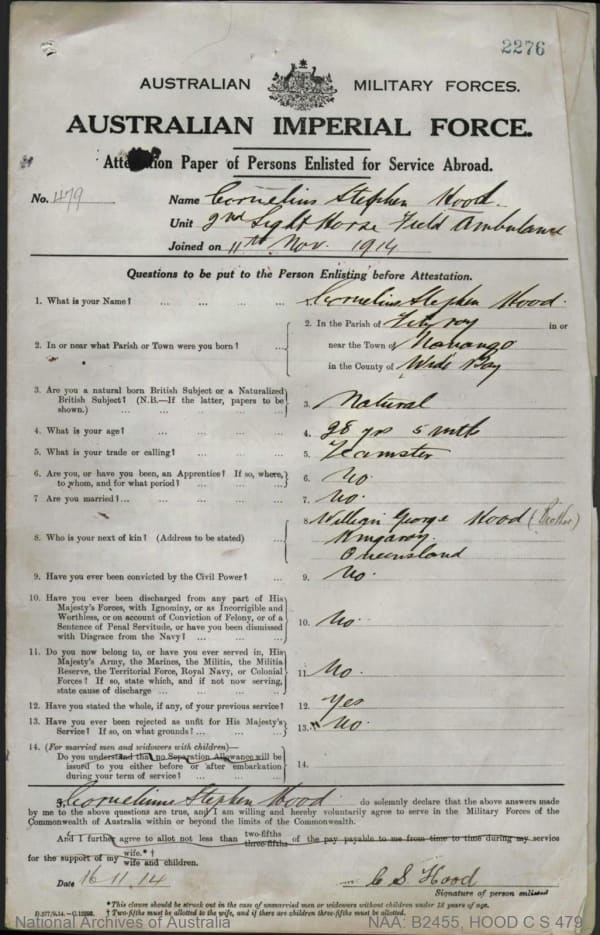 2276
AUSTRALIAN MILITARY FORCES.
AUSTRALIAN IMPERIAL FORCE.
Attestation Paper of Persons Enlisted for Service Abroad.
No. 479 Name Cornelius Stephen Hood.
Unit 2nd Light Horse Field Ambulance
Joined on 11th Nov. 1914
Questions to be put to the Person Enlisting before Attestation.
1. What is your Name? ... ... ... ... Cornelius Stephen Hood.
2. In or near what Parish or Town were you born? ... 2. In the Parish of Fitzroy in or
near the Town of Nanango
in the County of Wide Bay
3. Are you a natural born British Subject or a Naturalized
British Subject? (N.B.—If the latter, papers to be
shown.) ... ... ... ... ... 3. Natural
4. What is your age? ... ... ... ... 4. 28 yrs 5 mths
5. What is your trade or calling? ... ... ... 5. Teamster
6. Are you, or have you been, an Apprentice? If so, where,
to whom, and for what period? ... ... ... 6. No.
7. Are you married? ... ... ... ... ... 7. No.
8. Who is your next of kin? (Address to be stated) ... 8. William George Hood (Brother)
Kingaroy.
Queensland
9. Have you ever been convicted by the Civil Power? ... 9. No.
10. Have you ever been discharged from any part of His
Majesty's Forces, with Ignominy, or as Incorrigible and
Worthless, or on account of Conviction of Felony, or of a
Sentence of Penal Servitude, or have you been dismissed
with Disgrace from the Navy? ... ... ... 10. No.
11. Do you now belong to, or have you ever served in, His
Majesty's Army, the Marines, the Militia, the Militia
Reserve, the Territorial Force, Royal Navy, or Colonial
Forces? If so, state which, and if not now serving,
state cause of discharge ... ... ... ... 11. No.
12. Have you stated the whole, if any, of your previous service? 12. Yes
13. Have you ever been rejected as unfit for His Majesty's
Service? If so, on what grounds? ... ... ... 13. No.
14. (For married men and widowers with children)—
Do you understand that no Separation Allowance will be
issued to you either before or after embarkation
during your term of service? ... ... ... 14.
I, Cornelius Stephen Hood do solemnly declare that the above answers made
by me to the above questions are true, and I am willing and hereby voluntarily agree to serve in the Military Forces of the
Commonwealth of Australia within or beyond the limits of the Commonwealth.
And I further agree to allot not less than two-fifths three-fifths of the pay payable to me from time to time during my service
for the support of my wife.*† wife and children.
Date 16.11.14 C S Hood
Signature of person enlisted
*This clause should be struck out in the case of unmarried men or widowers without children under 18 years of age.
D.277/9.14.—C.12292. †Two-fifths must be allotted to the wife, and if there are children three-fifths must be allotted.
National Archives of Australia NAA: B2455, HOOD C S 479